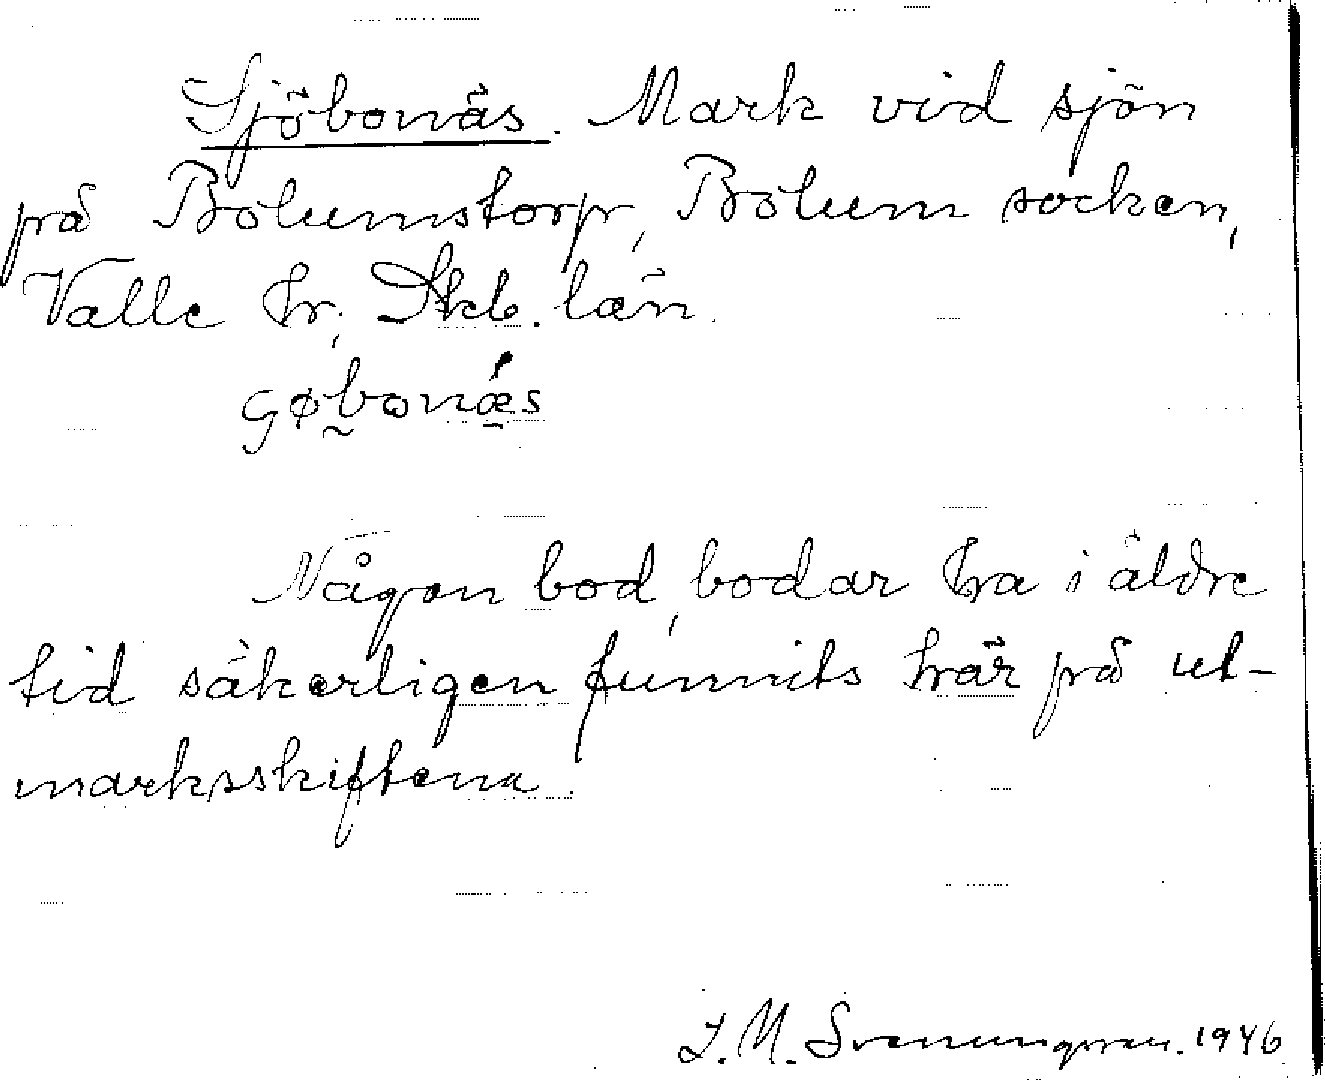 Sjöbonäs. Mark vid sjön
på Bolumstorp, Bolum socken,
Valle hr, Skb. län.
Någon bod, bodar ha i äldre
tid säkerligen funnits här på ut-
marksskiftena.
J. M. Svenungsson. 1946